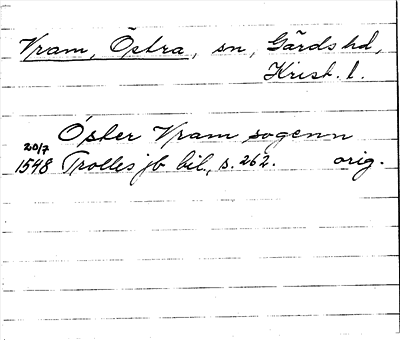 Vram, Östra, sn, Gärds hd,
Krist. l.
Öster Vram sogenn
20/7
1548 Trolles jb bil., s. 262. orig.